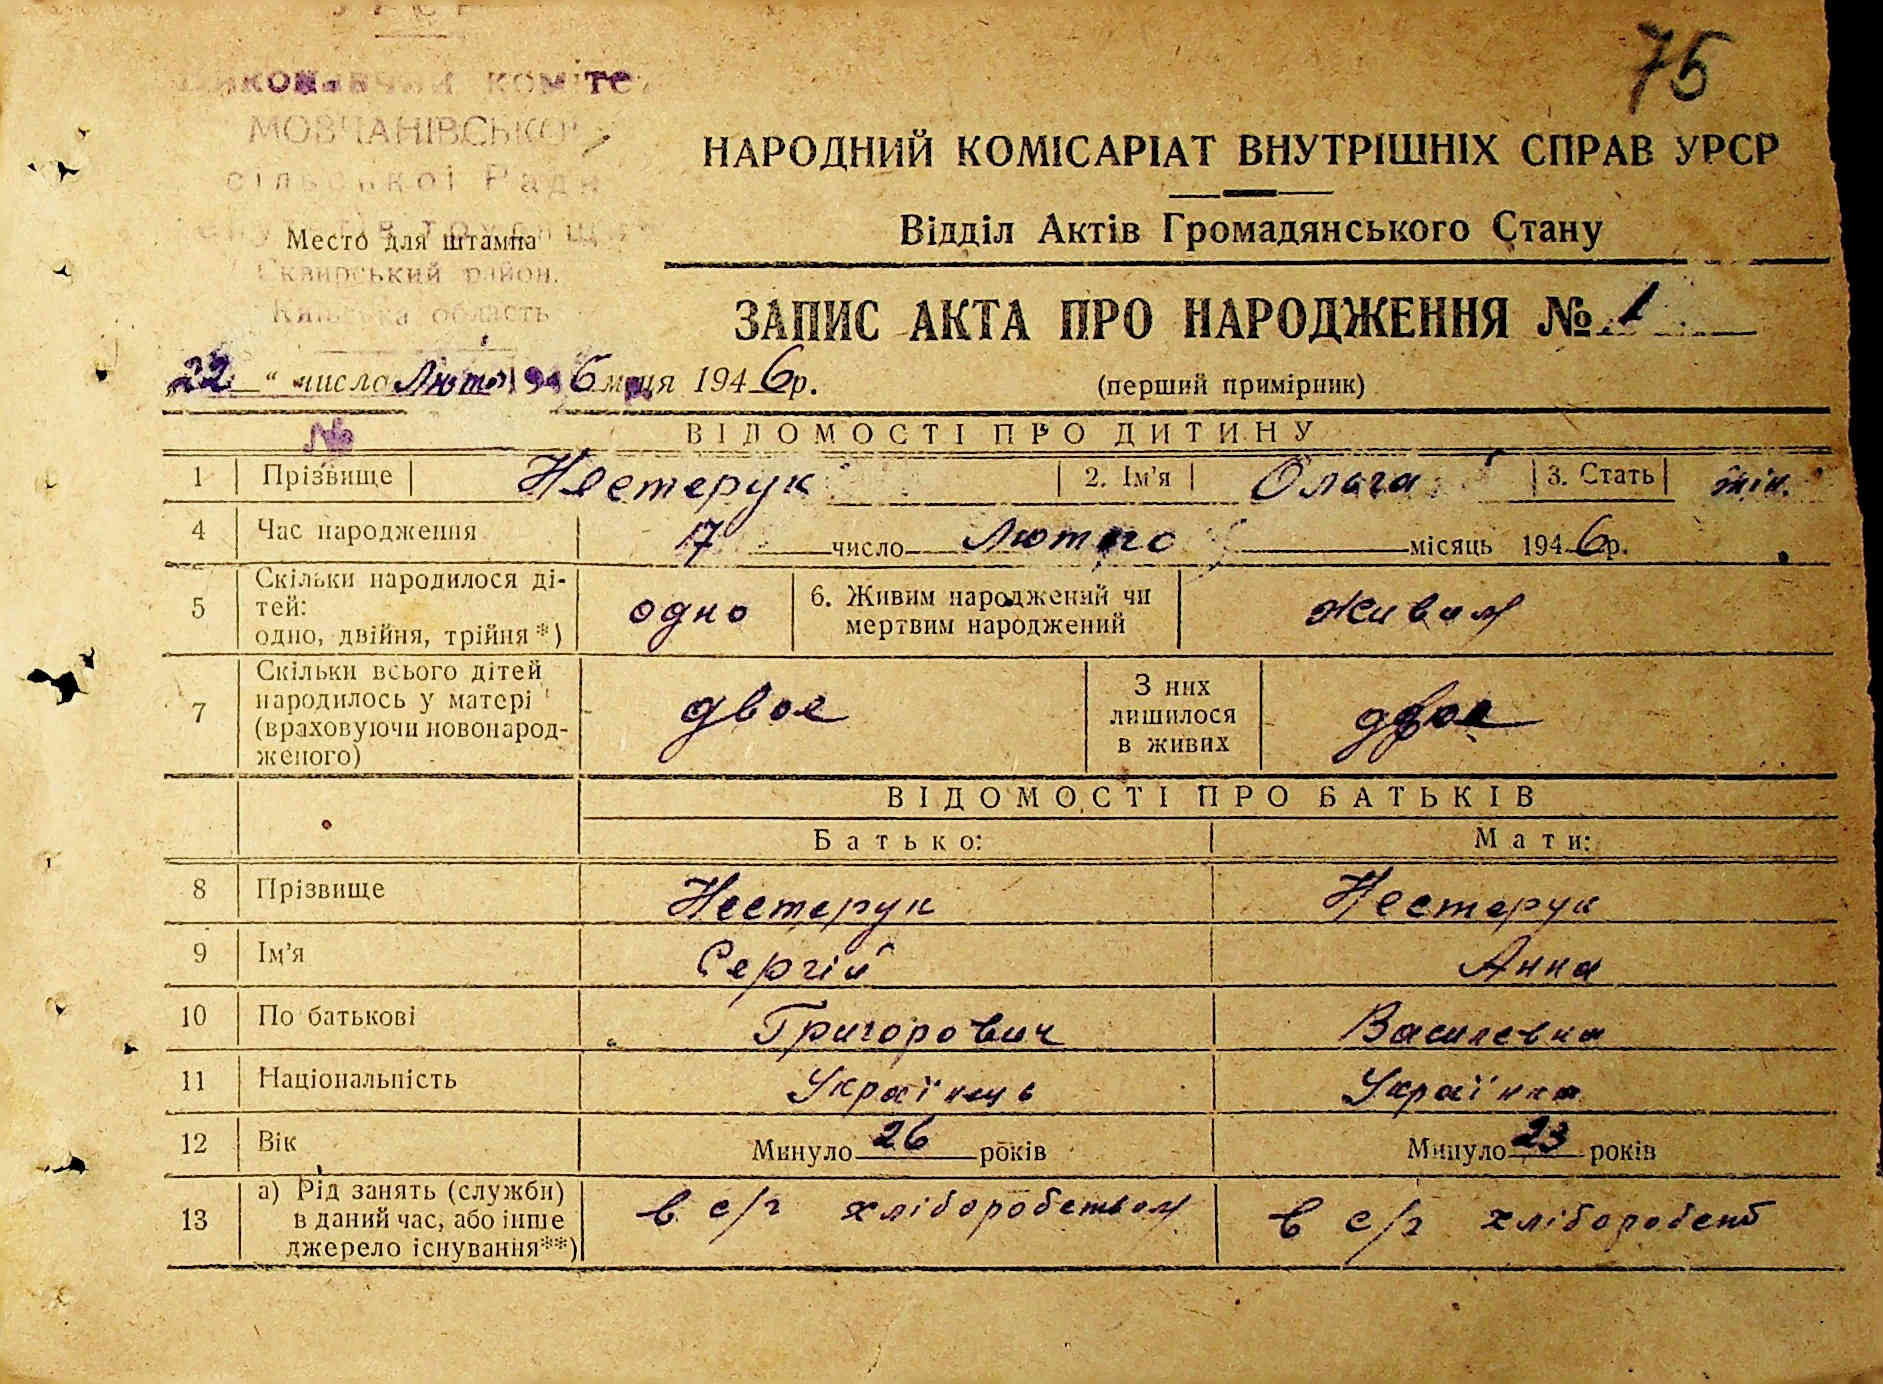 75
УРСР
ВИКОНАВЧИЙ КОМІТЕТ
МОВЧАНІВСЬКОЇ
сільської Ради
Сквирський район.
Київська область
Место для штампа
НАРОДНИЙ КОМІСАРІАТ ВНУТРІШНІХ СПРАВ УРСР
Відділ Актів Громадянського Стану
ЗАПИС АКТА ПРО НАРОДЖЕННЯ № 1
22 " число Лютого м-ця 1946р.
(перший примірник)
№
ВІДОМОСТІ ПРО ДИТИНУ
1 Прізвище Нестерук 2. Ім'я Ольга 3. Стать жін.
4 Час народження 17 число Лютого місяць 1946р.
5 Скільки народилося ді-
тей:
одно, двійня, трійня*) одно 6. Живим народжений чи
мертвим народжений живим
7 Скільки всього дітей
народилось у матері
(враховуючи новонарод-
женого) двоє З них
лишилося
в живих двоє
ВІДОМОСТІ ПРО БАТЬКІВ
Батько: Мати:
8 Прізвище Нестерук Нестерук
9 Ім'я Сергій Анна
10 По батькові Григорович Василевна
11 Національність Українець Українка
12 Вік Минуло 26 років Минуло 23 років
13 а) Рід занять (служби)
в даний час, або інше
джерело існування**) в с/г хліборобством в с/г хліборобств